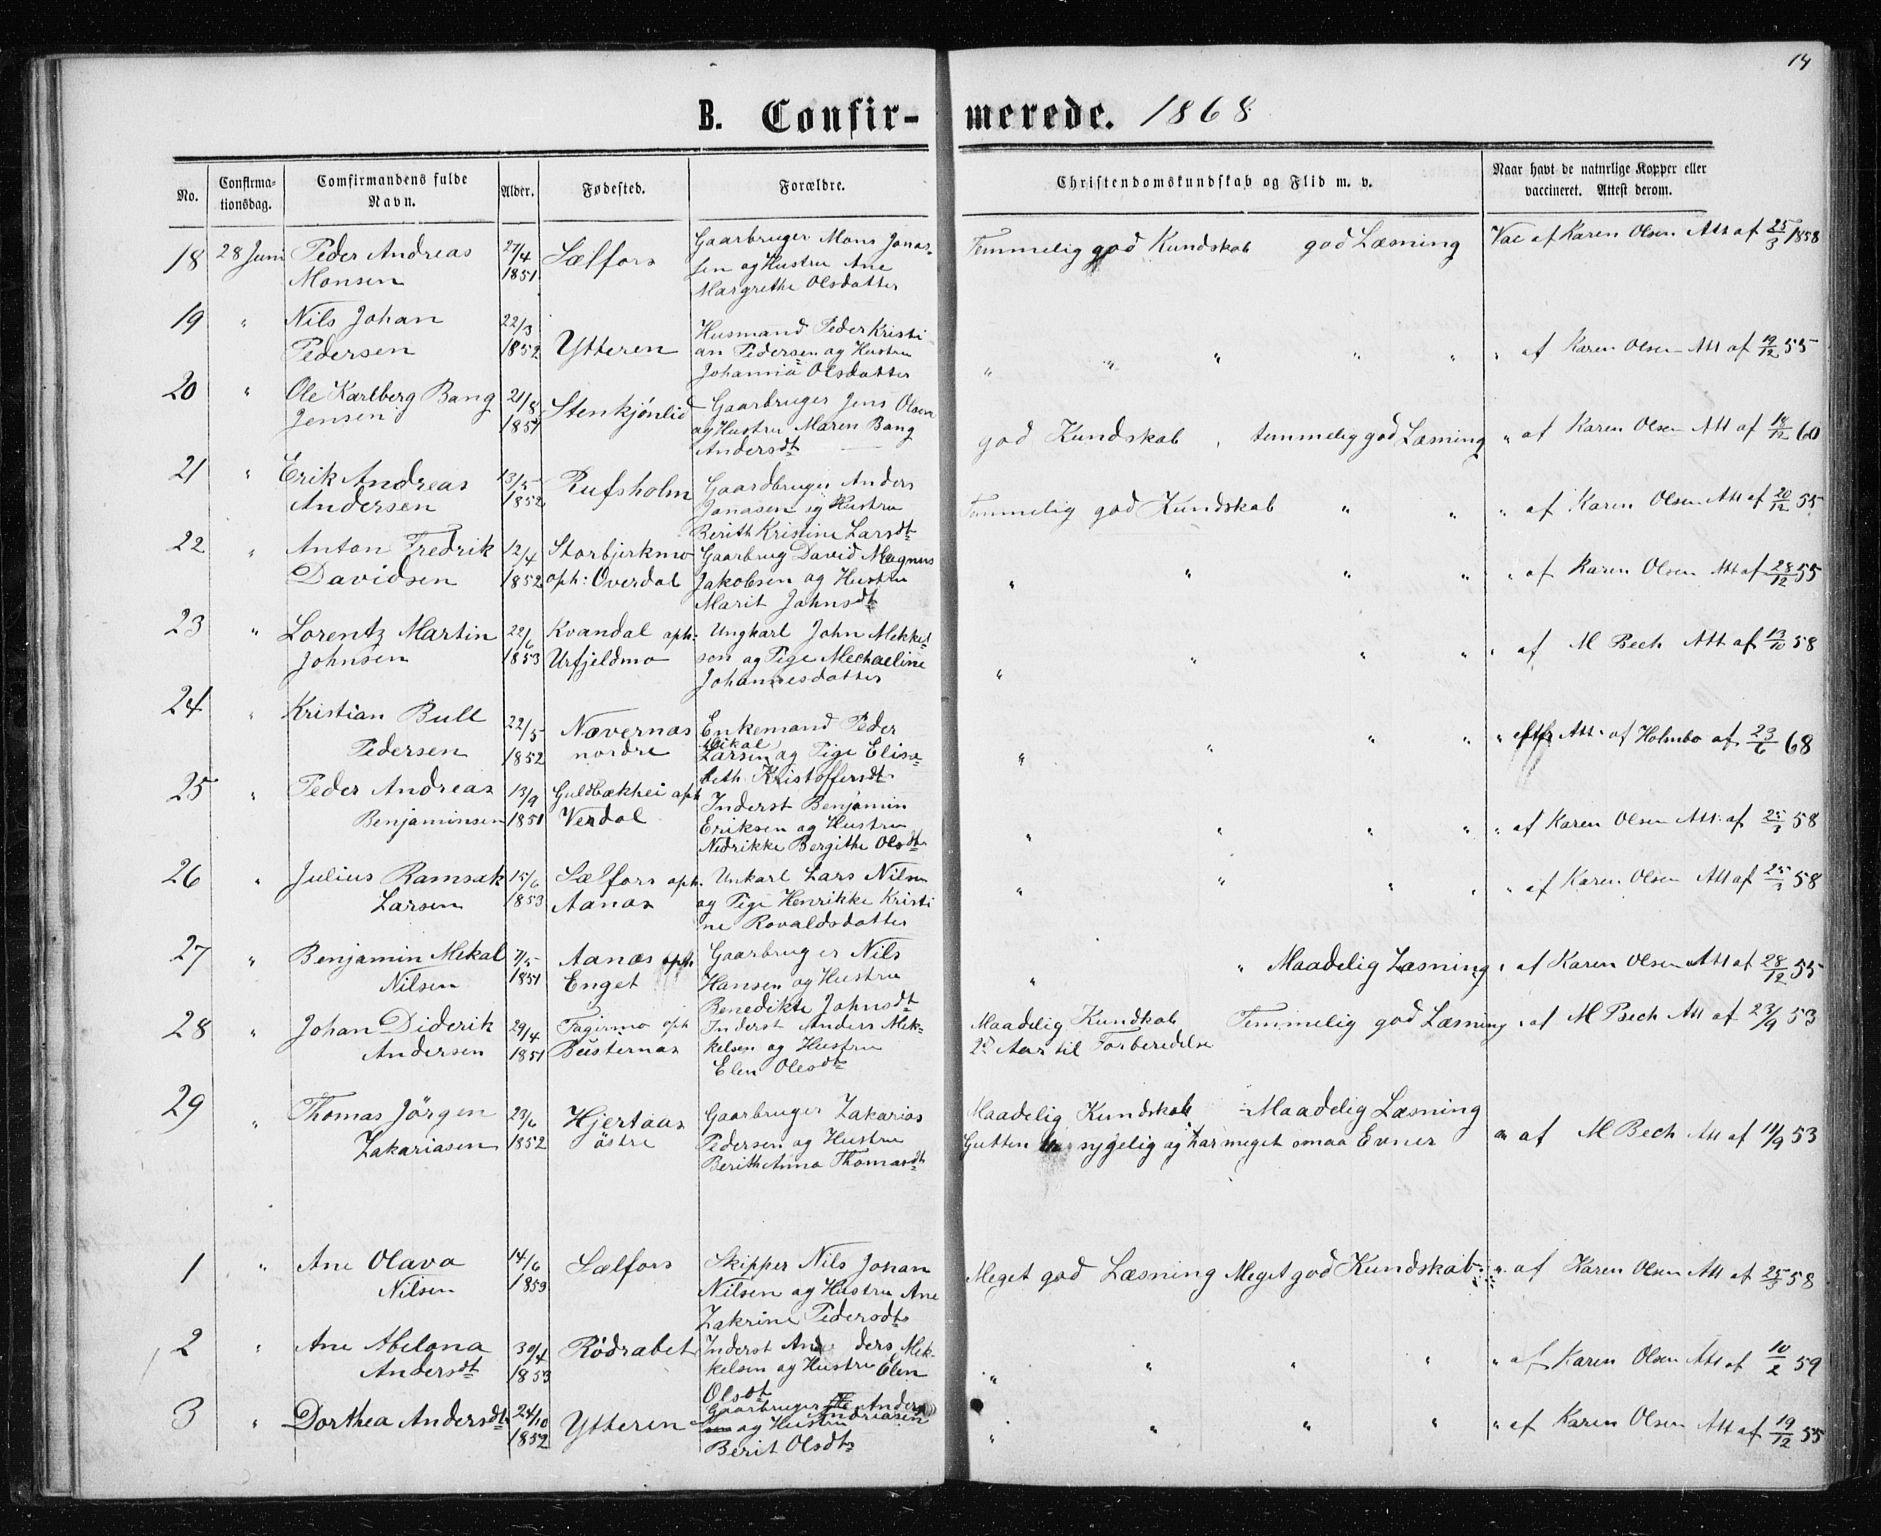 14
B. Confir- merede. 1868
No. Confirma- Comfirmandens fulde Alder. Fødested. Forældre. Christendomskundskab og Flid m. v. Naar havt de naturlige Kopper eller
tionsdag. Navn. vaccineret. Attest derom.
18 28 Juni Peder Andreas 27/4 Sælfors Gaarbruger Mons Jonas- Temmelig god Kundskab god Læsning Vac af Karen Olsen Att af 25/3 1858
Monsen 1851 sen og Hustru Ane
Margrethe Olsdatter
19 " Nils Johan 22/3 Ytteren Husmand Peder Kristi
Pedersen 1852 an Pedersen og Hustru " " " " " " af Karen Olsen Att af 19/12 55
Johanna Olsdatter
20 " Ole Karlberg Bang 21/8 Stenkjønlid Gaarbruger Jens Olsen
Jensen 1851 og Hustru Maren Bang god Kundskab, temmelig god Læsning " af Karen Olsen Att af 18/12 60
Andersdt
21 " Erik Andreas 13/5 Rufsholm Gaardbruger Anders
Andersen 1852 Jonasen og Hustru Temmelig god Kundskab " " " af Karen Olsen Att af 20/12 55
Berith Kristine Larsdt
22 " Anton Fredrik 12/4 Storbjerkmo Gaarbrug David Magnus
Davidsen 1852 oph: Overdal Jakobsen og Hustru " " " " " af Karen Olsen Att af 28/12 55
Marit Johnsdt
23 " Lorentz Martin 22/6 Kvandal oph: Ungkarl John Mekkel
Johnsen 1853 Urfjeldmo son og Pige Mechaeline " " " " " af M Bech Att af 13/10 58
Johannesdatter
24 " Kristian Bull 22/5 Nævernas Enkemand Peder
Mikal
Pedersen 1852 nordre Larsen og Pige Elisa- " " " " " Att af Holmbo af 23/6 68
beth Kristoffersdt
25 " Peder Andreas 13/9 Guldbækhei oph Inderst Benjamin
Benjaminsen 1851 Verdal Eriksen og Hustru " " " " " af Karen Olsen Att. af 25/3 58
Nedrikke Bergithe Olsdt
26 " Julius Ramsak 15/6 Sælfors oph. Unkarl Lars Nilsen " " " " " af Karen Olsen Att af 25/3 58
Larsen 1853 Aanas og Pige Henrikke Kristi
ne Rovaldsdatter
27 " Benjamin Mekal 7/5 Aanas oph. Gaarbruger Nils " " Maadelig Læsning " af Karen Olsen Att af 28/12 55
Nilsen 1851 Enget Hansen og Hustru
Benedikte Johnsdt
28 " Johan Diderik 29/4 Fagirmo oph Inderst Anders Mik- Maadelig Kundskab Temmelig god Læsning " af M Bech Att af 23/9 53
Andersen 1851 Busternas kelsen og Hustru 2det Aar til Forberedelse
Elen Olesdt
29 " Thomas Jörgen 23/6 Hjertaas Gaarbruger Zakarias Maadelig Kundskab - Maadelig Læsning
Zakariasen 1852 östre Pedersen og Hustru Gutten er sygelig og har meget smaa Evner " af M Bech Att af 11/9 53
Berith Anna Thomasdt
1 " Ane Olava 14/6 Sælfors Skipper Nils Johan Meget god Læsning Meget god Kundskab " af Karen Olsen Att af 25/3 58
Nilsen 1853 Nilsen og Hustru Ane
Zakrine Pedersdt
2 " Ane Abelona 30/4 Rödrabet Inderst Anders Mek-
Andersdt 1853 kelsen og Hustru Elen " " " " " af Karen Olsen Att af 10/2 59
Olsdt
3 " Dorthea Andersdt 24/10 Ytteren Gaarbruger Anders
Andriasen
1852 og Hustru " " " " " af Karen Olsen Att af 19/12 55
Berit Olsdt